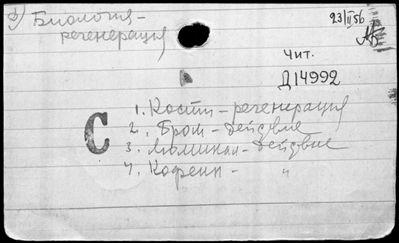 3) Биология –
регенерация
23/II 56
Чит.
Д14992
С
1. Кости – регенерация
2. Бром – действие
3. Люминал – действие
4. Кофеин – "